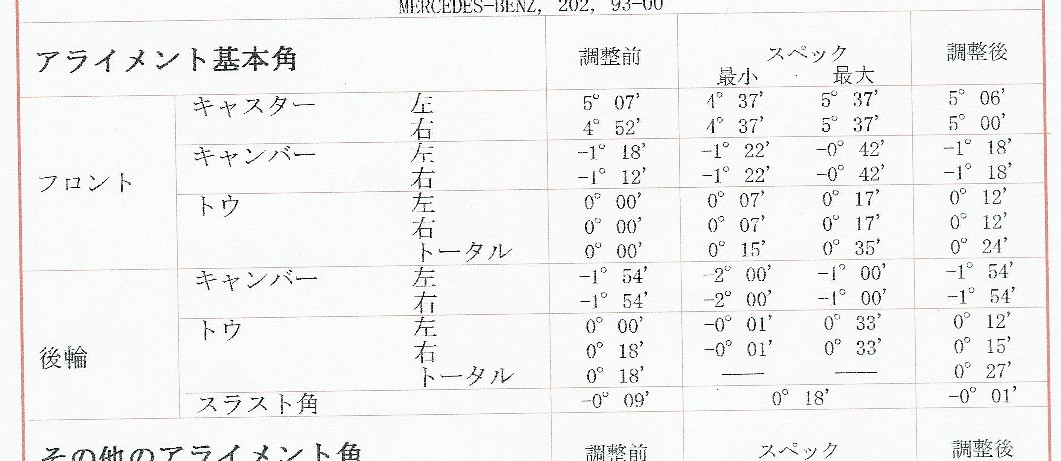 MERCEDES-BENZ, 202, 93-00
アライメント基本角 調整前 スペック 調整後
最小 最大
キャスター 左 5° 07' 4° 37' 5° 37' 5° 06'
右 4° 52' 4° 37' 5° 37' 5° 00'
キャンバー 左 -1° 18' -1° 22' -0° 42' -1° 18'
フロント 右 -1° 12' -1° 22' -0° 42' -1° 18'
トウ 左 0° 00' 0° 07' 0° 17' 0° 12'
右 0° 00' 0° 07' 0° 17' 0° 12'
トータル 0° 00' 0° 15' 0° 35' 0° 24'
キャンバー 左 -1° 54' -2° 00' -1° 00' -1° 54'
右 -1° 54' -2° 00' -1° 00' -1° 54'
トウ 左 0° 00' -0° 01' 0° 33' 0° 12'
後輪 右 0° 18' -0° 01' 0° 33' 0° 15'
トータル 0° 18' ---- ---- 0° 27'
スラスト角 -0° 09' 0° 18' -0° 01'
その他のアライメント角 調整前 スペック 調整後